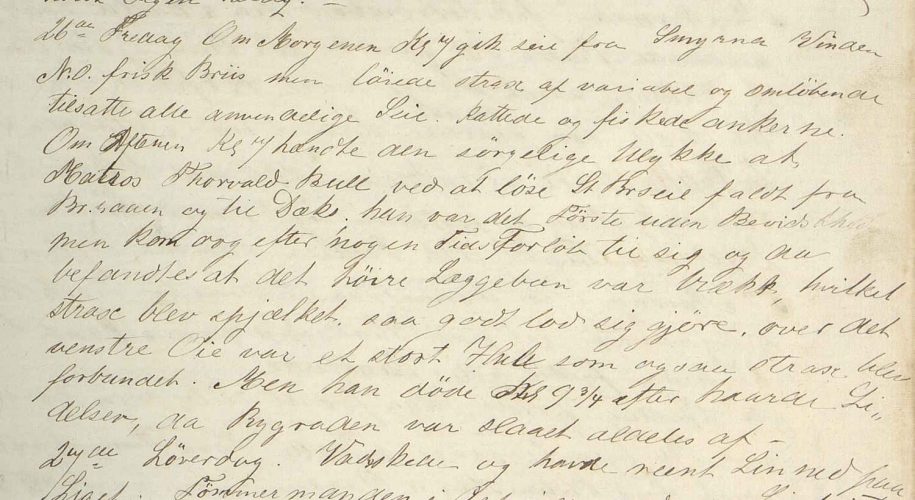 26de Fredag Om Morgenen Kl 7 gik seil fra Smyrna Vinden
N.O. frisk Briis men löiede strax af variabel og omlöbende
tilsatte alle anvendelige Seil. Kattede og fiskede ankerne.
Om Aftenen Kl 7 hændte den sörgelige Ulykke at
Matros Thorvald Bull ved at löse St Br seil faldt fra
Br. raaen og til Dæks, han var det Förste uden Bevidsthed
men kom dog efter nogen Tids Forlöb til sig og da
befandtes at det höire Læggebeen var brækk, hvilket
strax blev spjælket, saa godt lod sig gjöre, over det
venstre Öie var et stort Hull som ogsaa strax blev
forbundet. Men han döde Kl 9 3/4 efter haarde Li„
delser, da Rygraden var slaaet aldeles af –
27de Löverdag. Vadskede og havde reent Linned paa
Liget. Tömmermanden